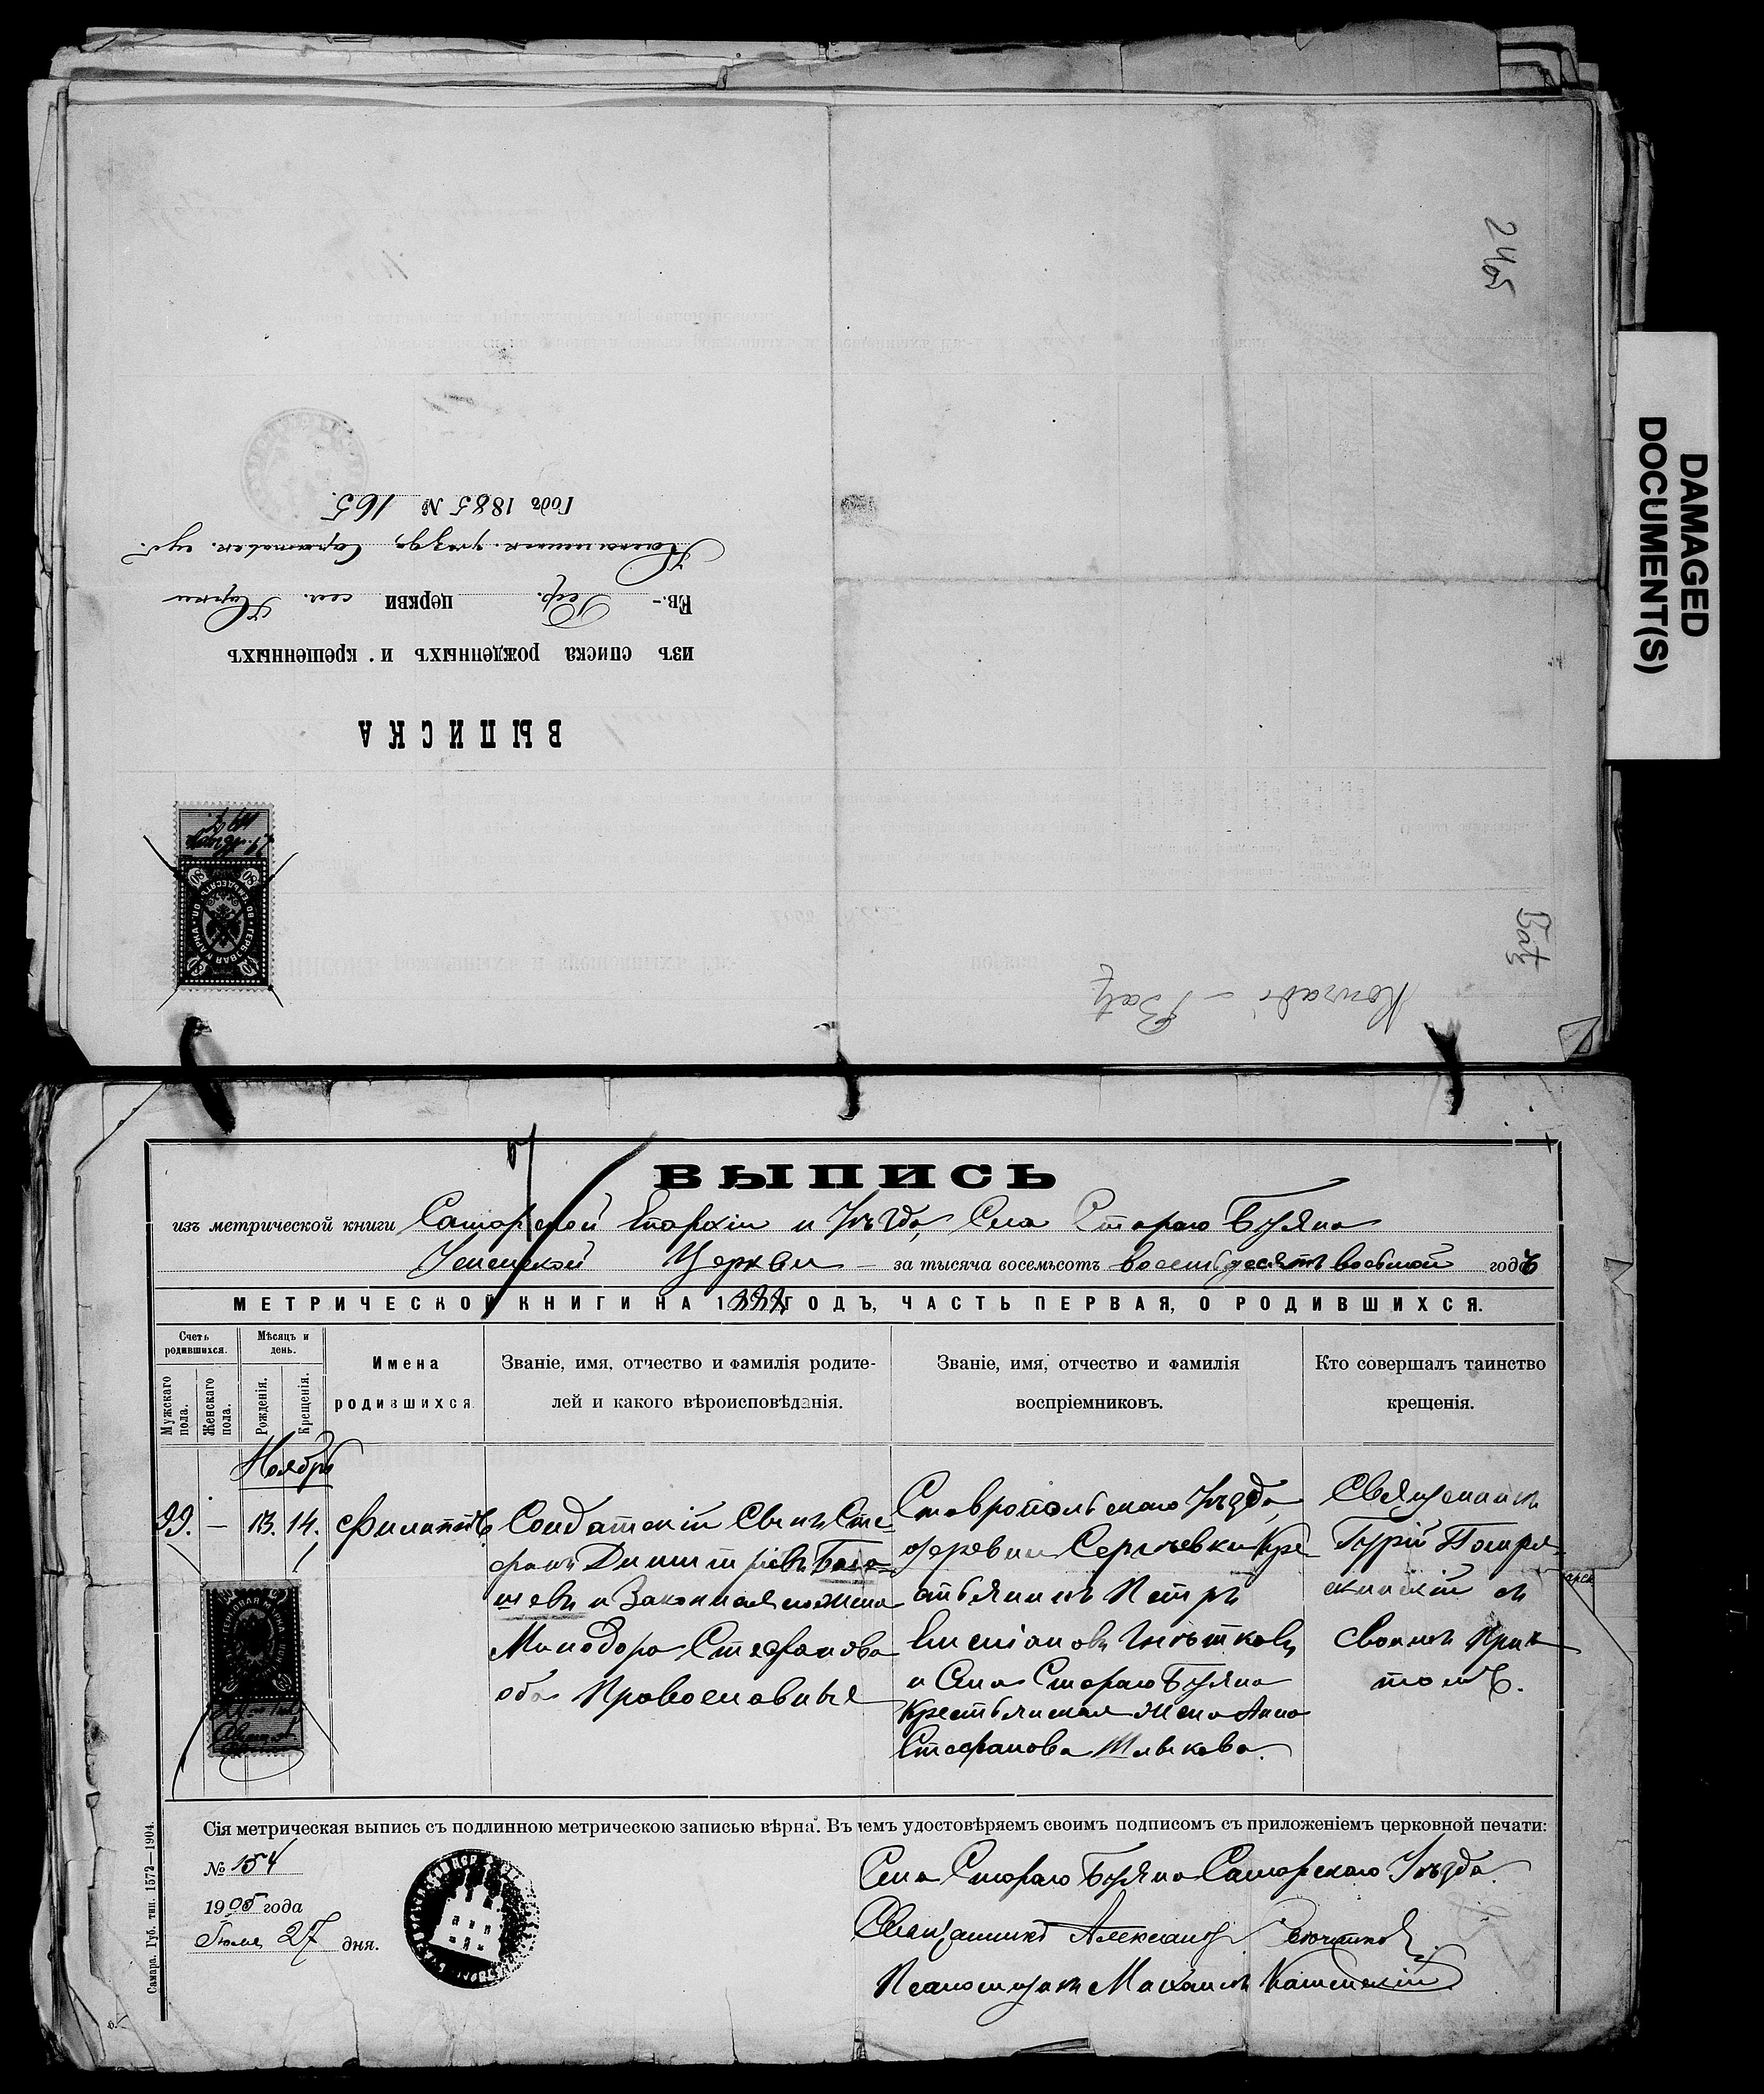 2465
DAMAGED
DOCUMENT(S)
Batz
Konradi - Batz
ВЫПИСКА
изъ списка рожденныхъ и крещенныхъ
Ев.- Реф. церкви сел. Норки
Камышинск. уѣзда, Саратовск. губ.
Годъ 1885 № 165.
ВЫПИСЬ
изъ метрической книги Самарской Епархіи и Уѣзда, Села Стараго Буяна
Церкви — за тысяча восемьсотъ восемьдесятъ восьмой годъ
МЕТРИЧЕСКОЙ КНИГИ НА 1888 ГОДЪ, ЧАСТЬ ПЕРВАЯ, О РОДИВШИХСЯ.
Счетъ родившихся.
Мужскаго пола.
Женскаго пола.
Мѣсяцъ и день.
Рожденія.
Крещенія.
Имена
родившихся
Званіе, имя, отчество и фамилія родите-
лей и какого вѣроисповѣданія.
Званіе, имя, отчество и фамилія
воспріемниковъ.
Кто совершалъ таинство
крещенія.
Ноябрь
99. — 13. 14. Филиппъ
Солдатскій Сынъ Сте-
фанъ Димитріевъ
и Законная его жена
Минодора Стефанова
оба Православные
Ставропольскаго Уѣзда,
деревни Сергѣевки Кре
стьянинъ Петръ
и Села Стараго Буяна
Крестьянская жена Анна
Стефанова
Священникъ
Гурій
съ
Своимъ Прич
томъ.
Сія метрическая выпись съ подлинною метрическою записью вѣрна. Въ чемъ удостовѣряемъ своимъ подписомъ съ приложеніемъ церковной печати:
№ 154
1905 года
Іюля 27 дня.
Села Стараго Буяна Самарскаго Уѣзда
Священникъ Александръ
Псаломщикъ Михаилъ
Самара. Губ. тип. 1572—1904.